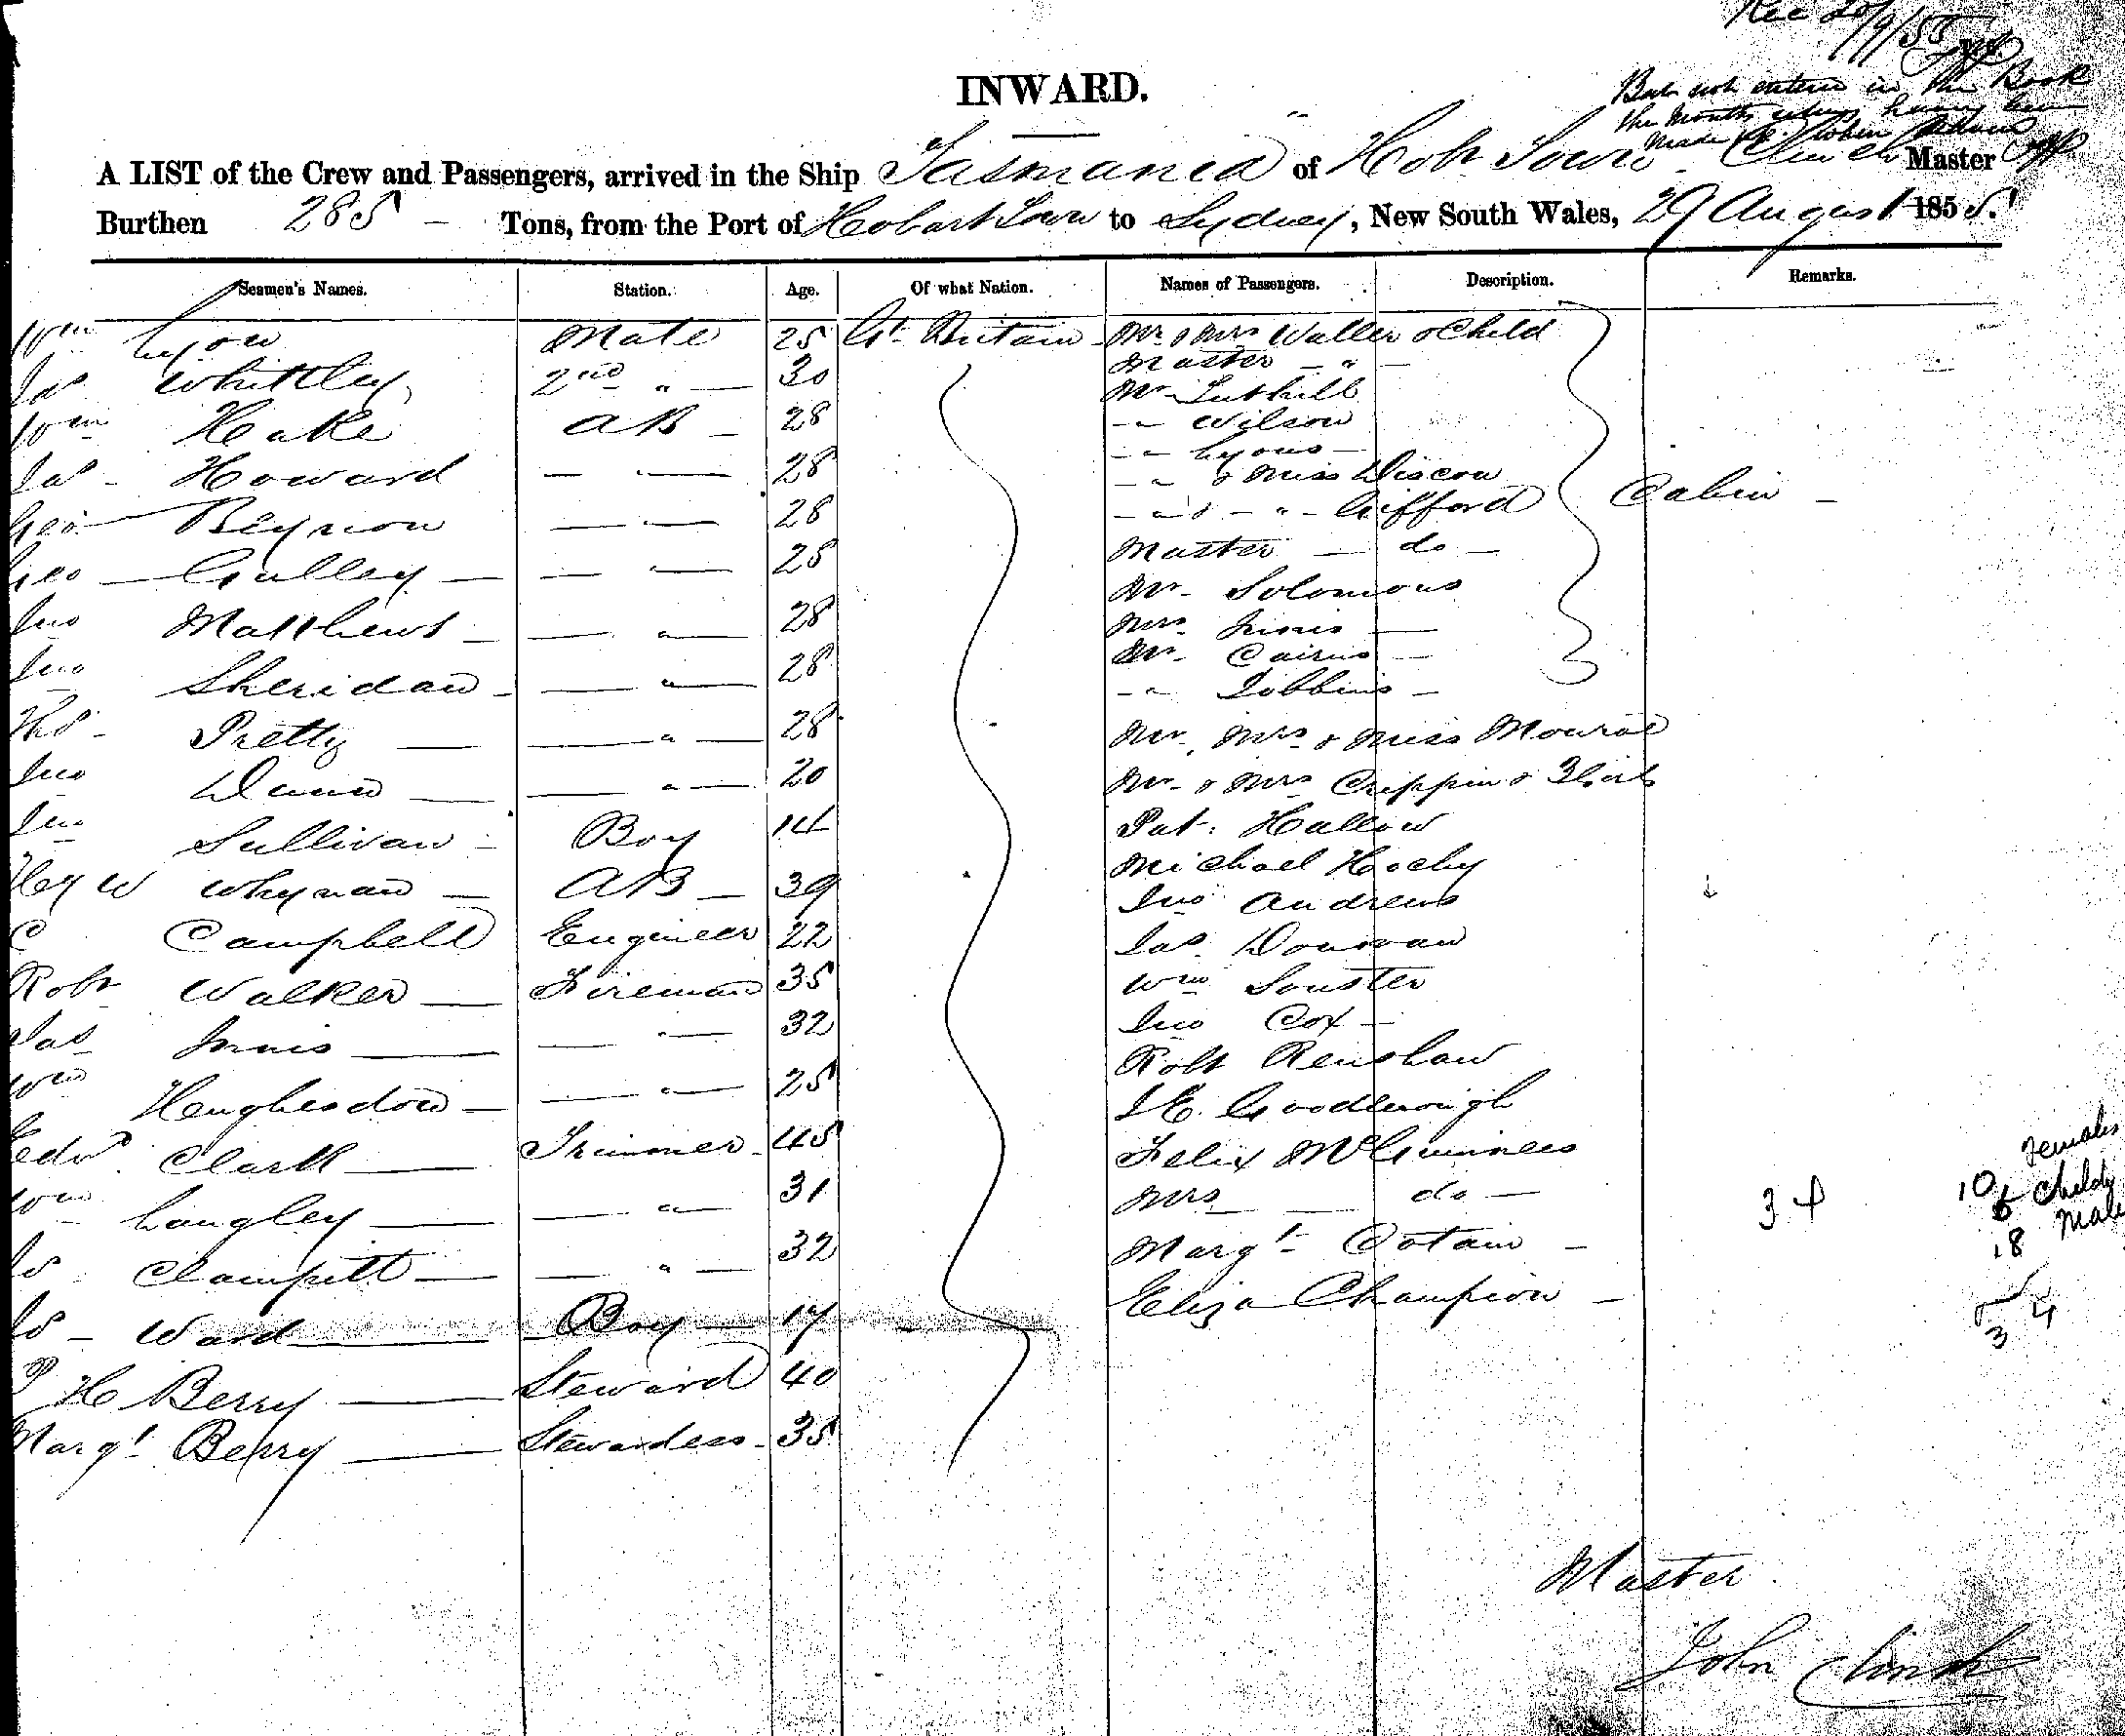 Rec 20/9/55
But not entered in the Book
the Months return having been
made up when
INWARD.
A LIST of the Crew and Passengers, arrived in the Ship Tasmania of Hobt Town Clinch Master
Burthen 285 - Tons, from the Port of Hobart Town to Sydney, New South Wales, 29 August 1855.
Seamen's Names. Station. Age. Of what Nation. Names of Passengers. Description. Remarks.
Wm Lyon Mate 25 Gt. Britain Mr & Mrs Waller & Child
Jas Whittley 2nd " 30 Master - "
Wm Hake AB - 28 Mr Tuthill
- " Wilson
- " Lyons -
Jas - Howard — " — 28 - " & Miss Discon
Geo - Beynon — " — 28 - " & - " - Gifford Cabin -
Geo - Gulley — " — 25 Master — do -
Mr - Solomons
Jno Matthews - — " — 28 Mrs Innis —
Jno Sheridan - — " — 28 Mr - Cairns —
- " Tibbins -
Thos - Pretty — " — 28 Mr, Mrs & Miss Monroe
Jno Dunn — " — 20 Mr - & Mrs Crippin & 3 Ch
Jno Sullivan - Boy 14 Pat. Hallow
Michael Hochy
Hey W Whynan — AB - 39 Jno Andrews
C Campbell Engineer 22 Jas. Donovan
Robt Walker — Fireman 35 Wm Souster
Jas Innis — " — 32 Jno Cox -
Robt Renshaw
Wm Henghesdon - — " — 25 J E. Goodenough
Edwd. Clark — Trimmer 45 Felix McGuinness
Wm Langley — " — 31 Mrs — do — 34 10 Females
6 Childn
18 Male
Jas Clampitt — " — 32 Margt - Cotain -
Jas - Ward — Boy — 17 Eliza Champion -
34
H Berry — Steward 40
Margt Berry — Stewardess - 35
Master
John Clinch